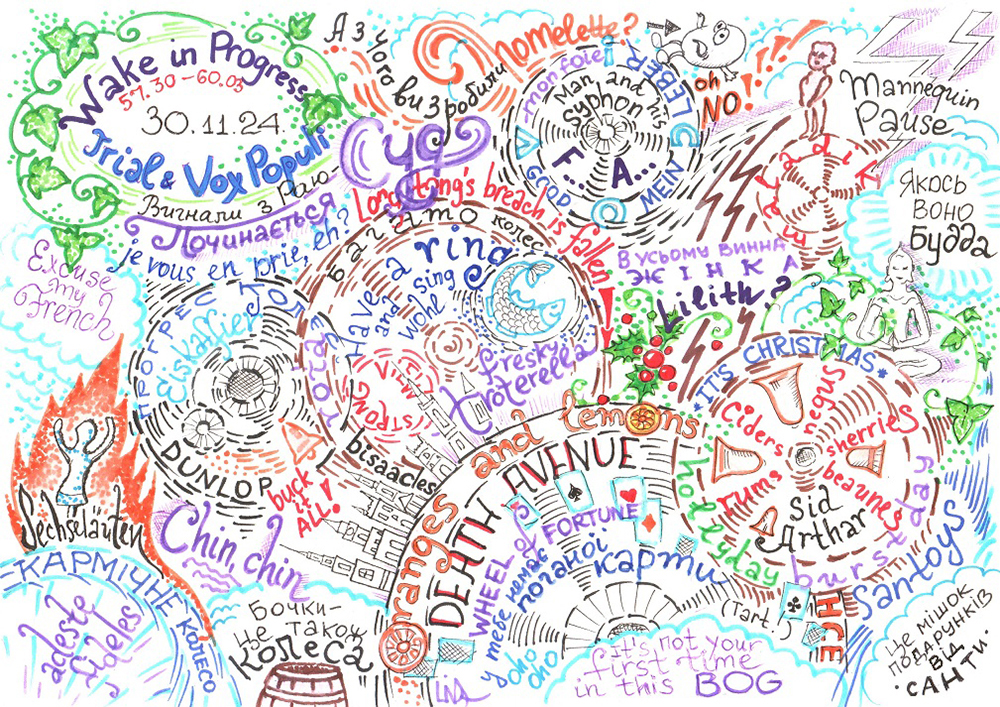 Wake in Progress
57.30 – 60.03
30.11.24.
Trial & Vox Populi
Вигнали з Раю-
Починається
je vous en prie, eh?
Excuse
my
French
А з чого ви зробили
Суд
homelette?
mon foie!
Man and his
syphon
F... A...
LIEBER
GOOD
MEIN
oh
NO!
Mannequin
Pause
Якось
воно
Будда
Long hong's breach is fallen!
Багато колес
Have a ring
and sing
wohl
firesky
Eiskaffier
DUNLOP
buck
it
ALL!
bisaacles
В усьому винна
ЖІНКА
Lilith?
IT'S CHRISTMAS
Ciders
negus
sherries
rums
beaunes
Sid
Arthar
hollyday
burstday
Santoys
oranges and lemons
DEATH AVENUE
WHEEL of FORTUNE
у тебе немає поганої карти
yoho
oho
(Tart.)
HICE
Sechseläuten
Chin, chin
КАРМІЧНЕ КОЛЕСО
adeste
fideles
Бочки-
це також
колеса
it's not your
first time
in this BOG
це мішок
подарунків
від
САНТИ